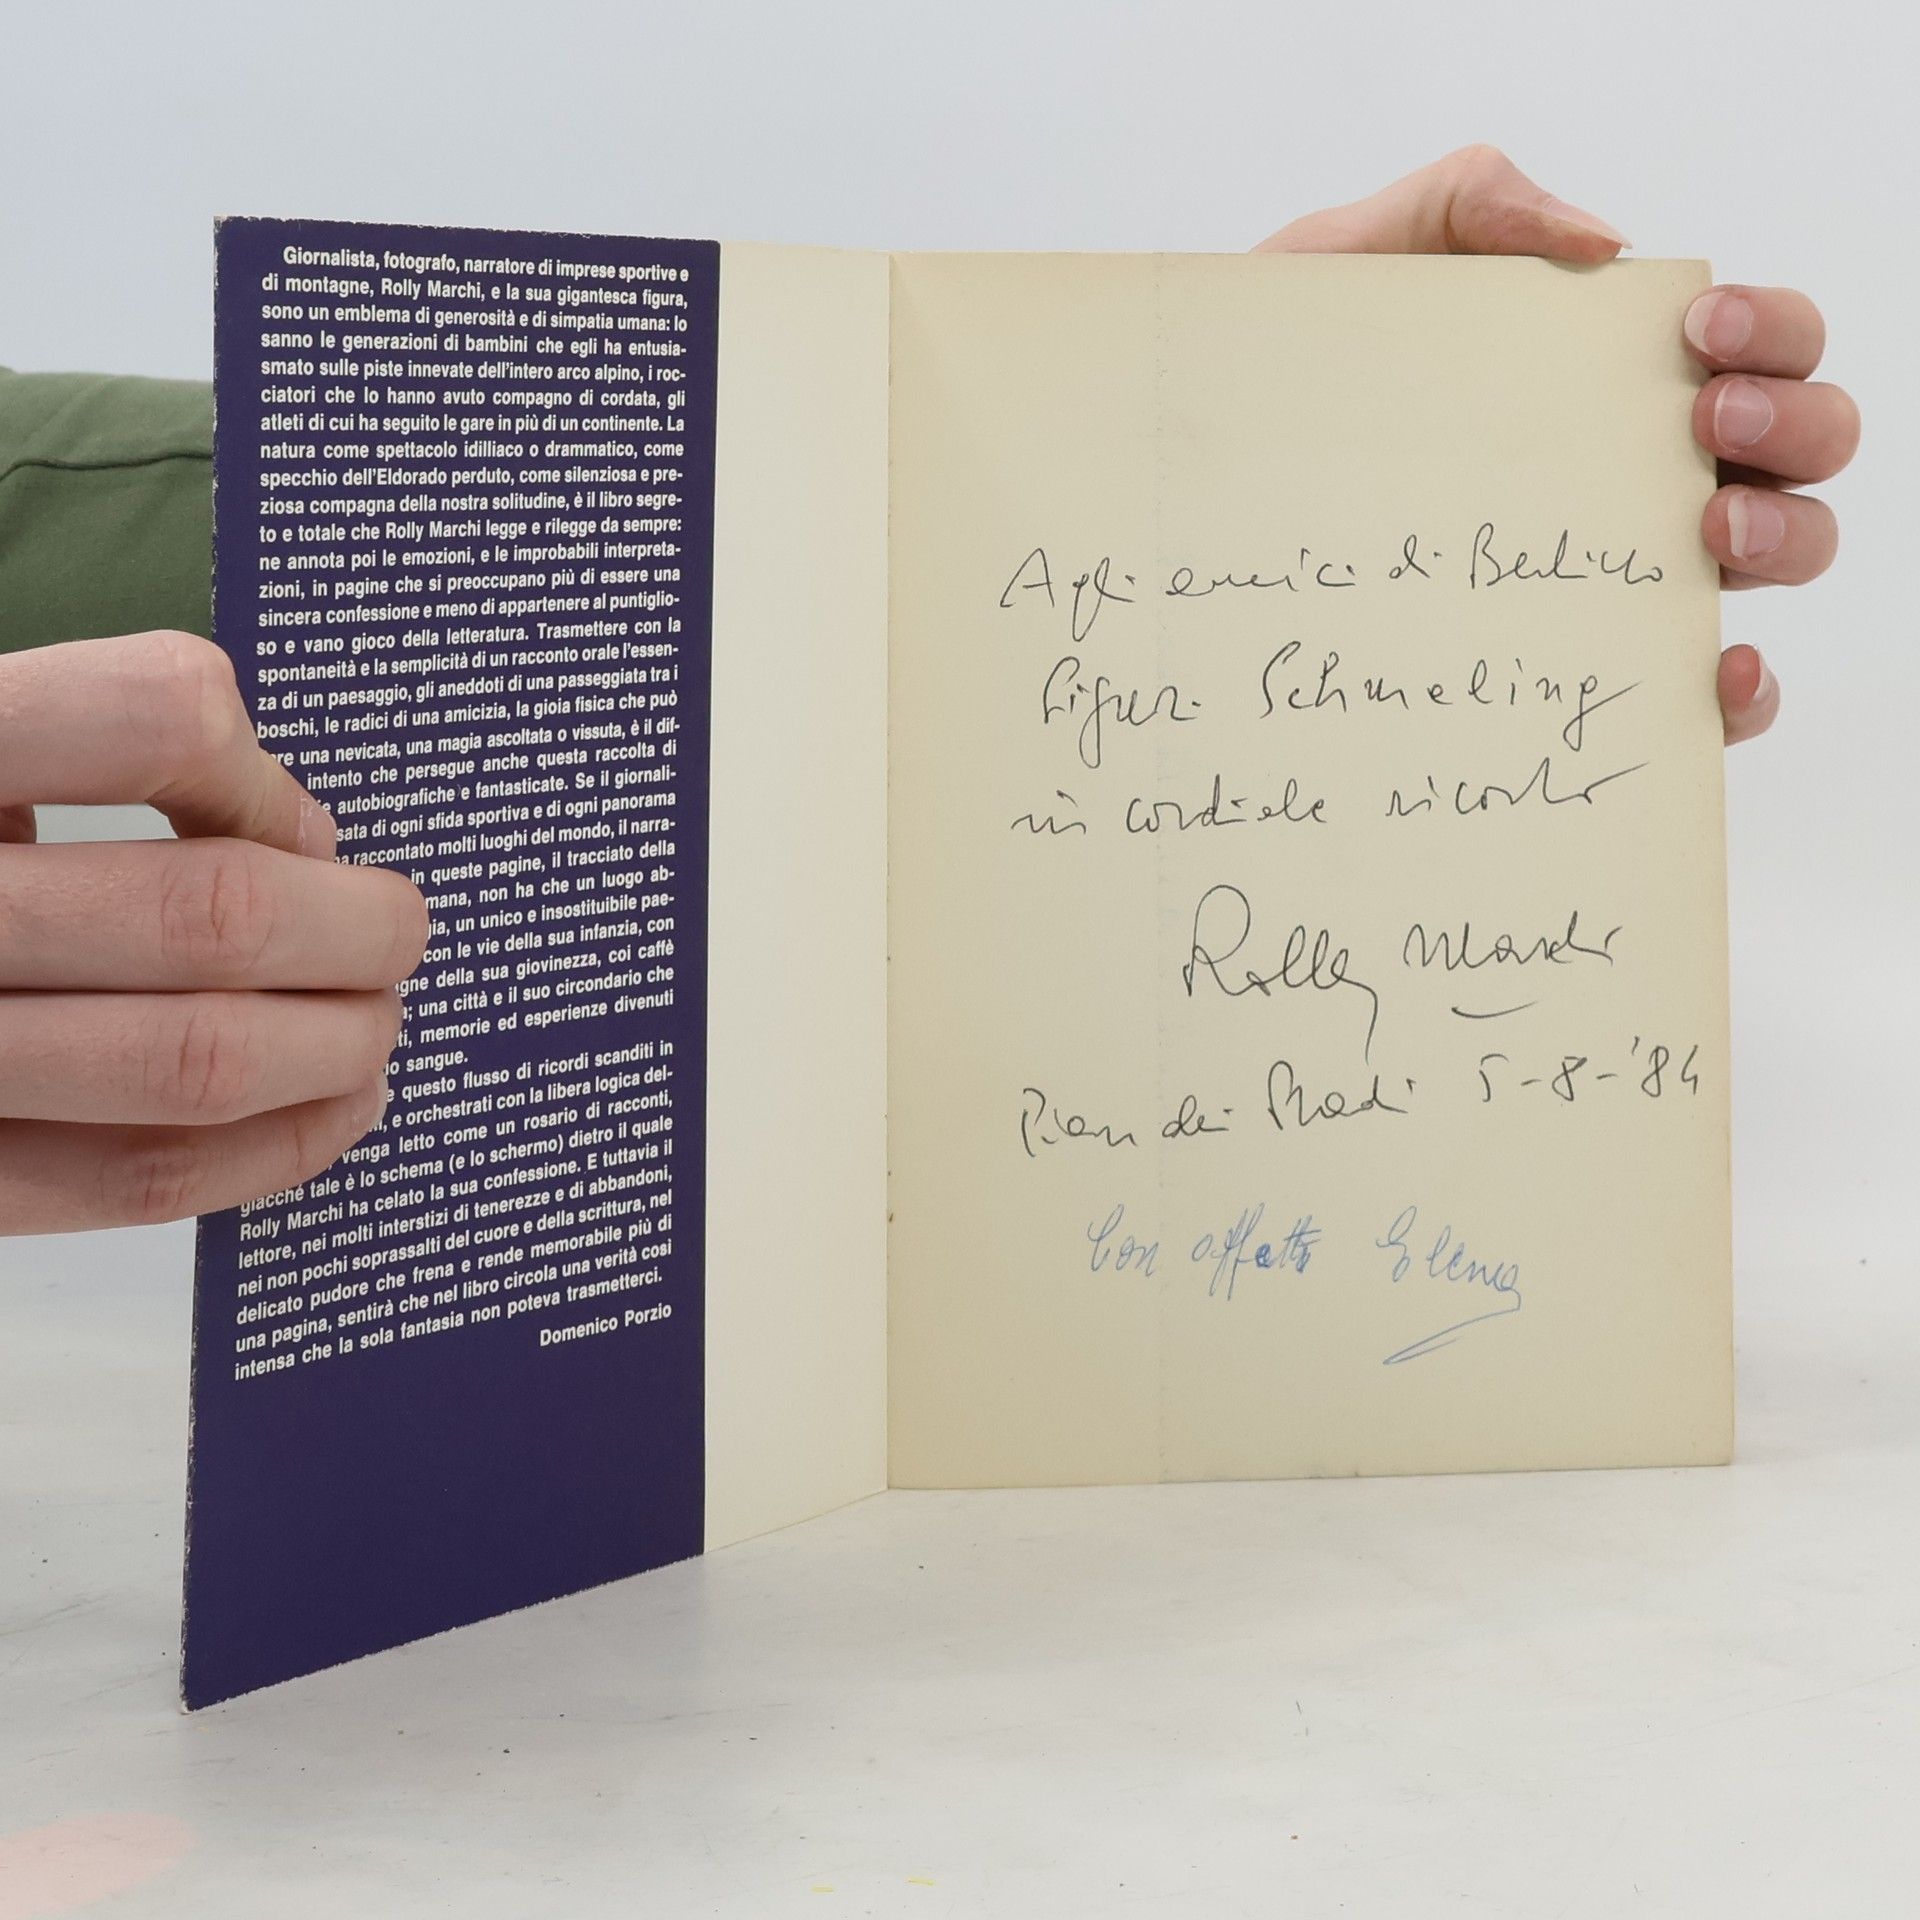 Giornalista, fotografo, narratore di imprese sportive e
di montagne, Rolly Marchi, e la sua gigantesca figura,
sono un emblema di generosità e di simpatia umana: lo
sanno le generazioni di bambini che egli ha entusia-
smato sulle piste innevate dell'intero arco alpino, i roc-
ciatori che lo hanno avuto compagno di cordata, gli
atleti di cui ha seguito le gare in più di un continente. La
natura come spettacolo idilliaco o drammatico, come
specchio dell'Eldorado perduto, come silenziosa e pre-
ziosa compagna della nostra solitudine, è il libro segre-
to e totale che Rolly Marchi legge e rilegge da sempre:
ne annota poi le emozioni, e le improbabili interpreta-
zioni, in pagine che si preoccupano più di essere una
sincera confessione e meno di appartenere al puntiglio-
so e vano gioco della letteratura. Trasmettere con la
spontaneità e la semplicità di un racconto orale l'essen-
za di un paesaggio, gli aneddoti di una passeggiata tra i
boschi, le radici di una amicizia, la gioia fisica che può
re una nevicata, una magia ascoltata o vissuta, è il dif-
intento che persegue anche questa raccolta di
autobiografiche e fantasticate. Se il giornali-
sata di ogni sfida sportiva e di ogni panorama
raccontato molti luoghi del mondo, il narra-
in queste pagine, il tracciato della
mana, non ha che un luogo ab-
ia, un unico e insostituibile pae-
con le vie della sua infanzia, con
gne della sua giovinezza, coi caffè
; una città e il suo circondario che
ti, memorie ed esperienze divenuti
io sangue.
e questo flusso di ricordi scanditi in
, e orchestrati con la libera logica del-
venga letto come un rosario di racconti,
giacché tale è lo schema (e lo schermo) dietro il quale
Rolly Marchi ha celato la sua confessione. E tuttavia il
lettore, nei molti interstizi di tenerezze e di abbandoni,
nei non pochi soprassalti del cuore e della scrittura, nel
delicato pudore che frena e rende memorabile più di
una pagina, sentirà che nel libro circola una verità così
intensa che la sola fantasia non poteva trasmetterci.
Domenico Porzio
Agli amici di
Schmeling
in cordiale ricordo
Rolly Marchi
Pian dei Pradi 5-8-'84
Con affetto Elena